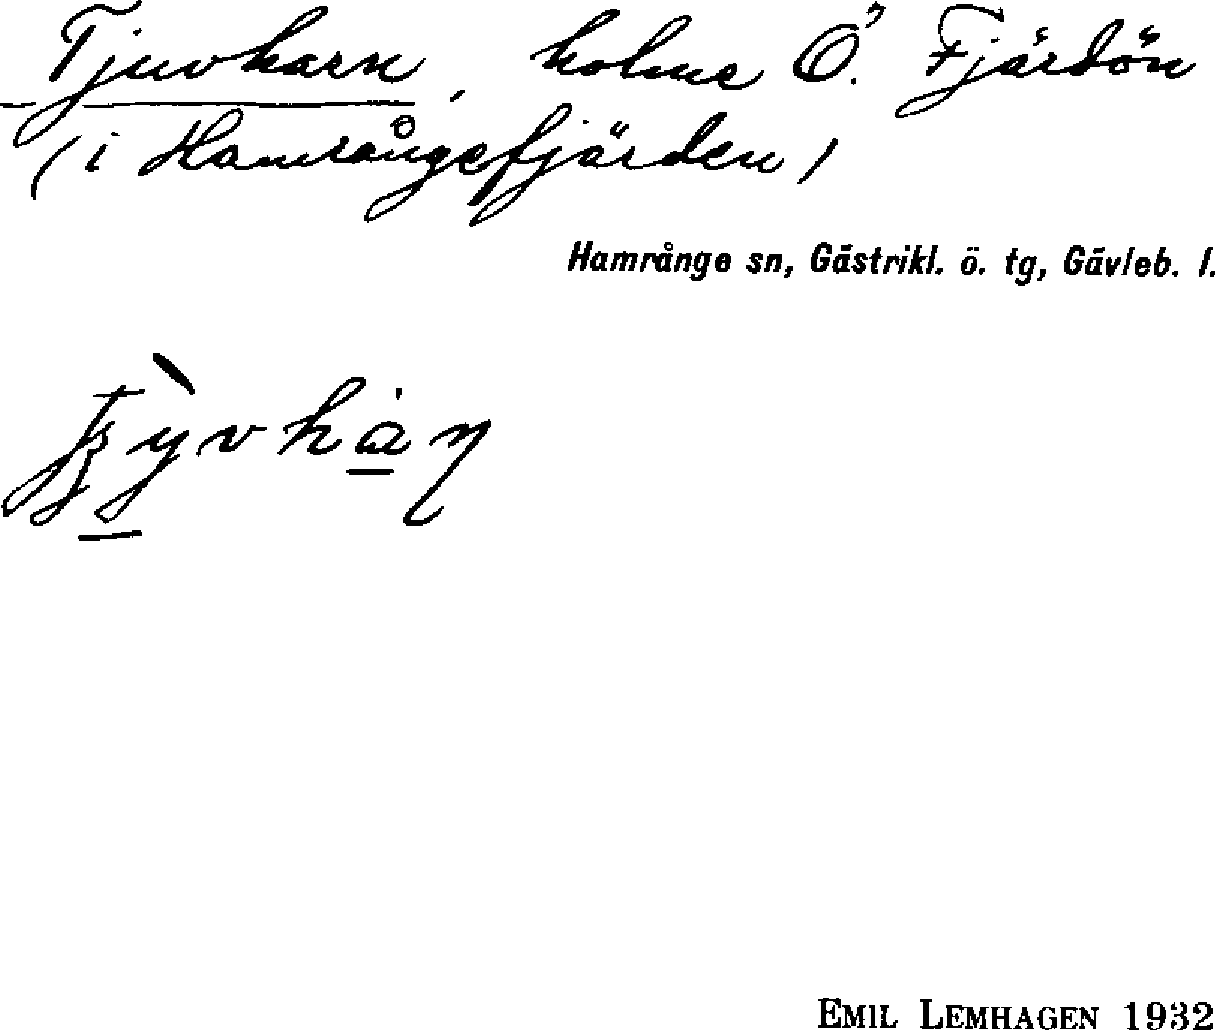 Tjuvharn, holme Ö. Fjärdön
(i Hamrångefjärden)
Hamrånge sn, Gästrikl. ö. tg, Gävleb. l.
EMIL LEMHAGEN 1932